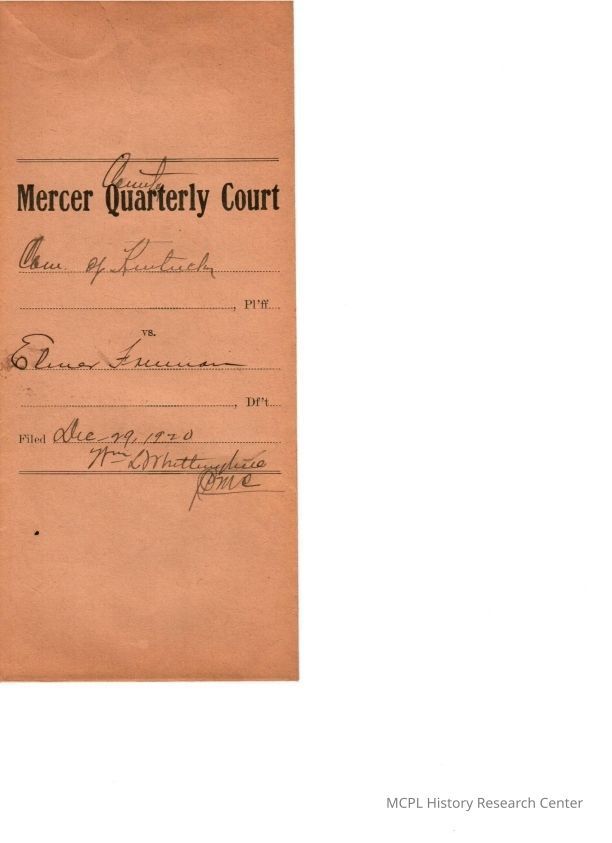 County
Mercer Quarterly Court
Com. of Kentucky
, Pl'ff.
vs.
Elmer Freeman
, Df't.
Filed Dec 29, 1920
Wm L Whittinghill
MCPL History Research Center